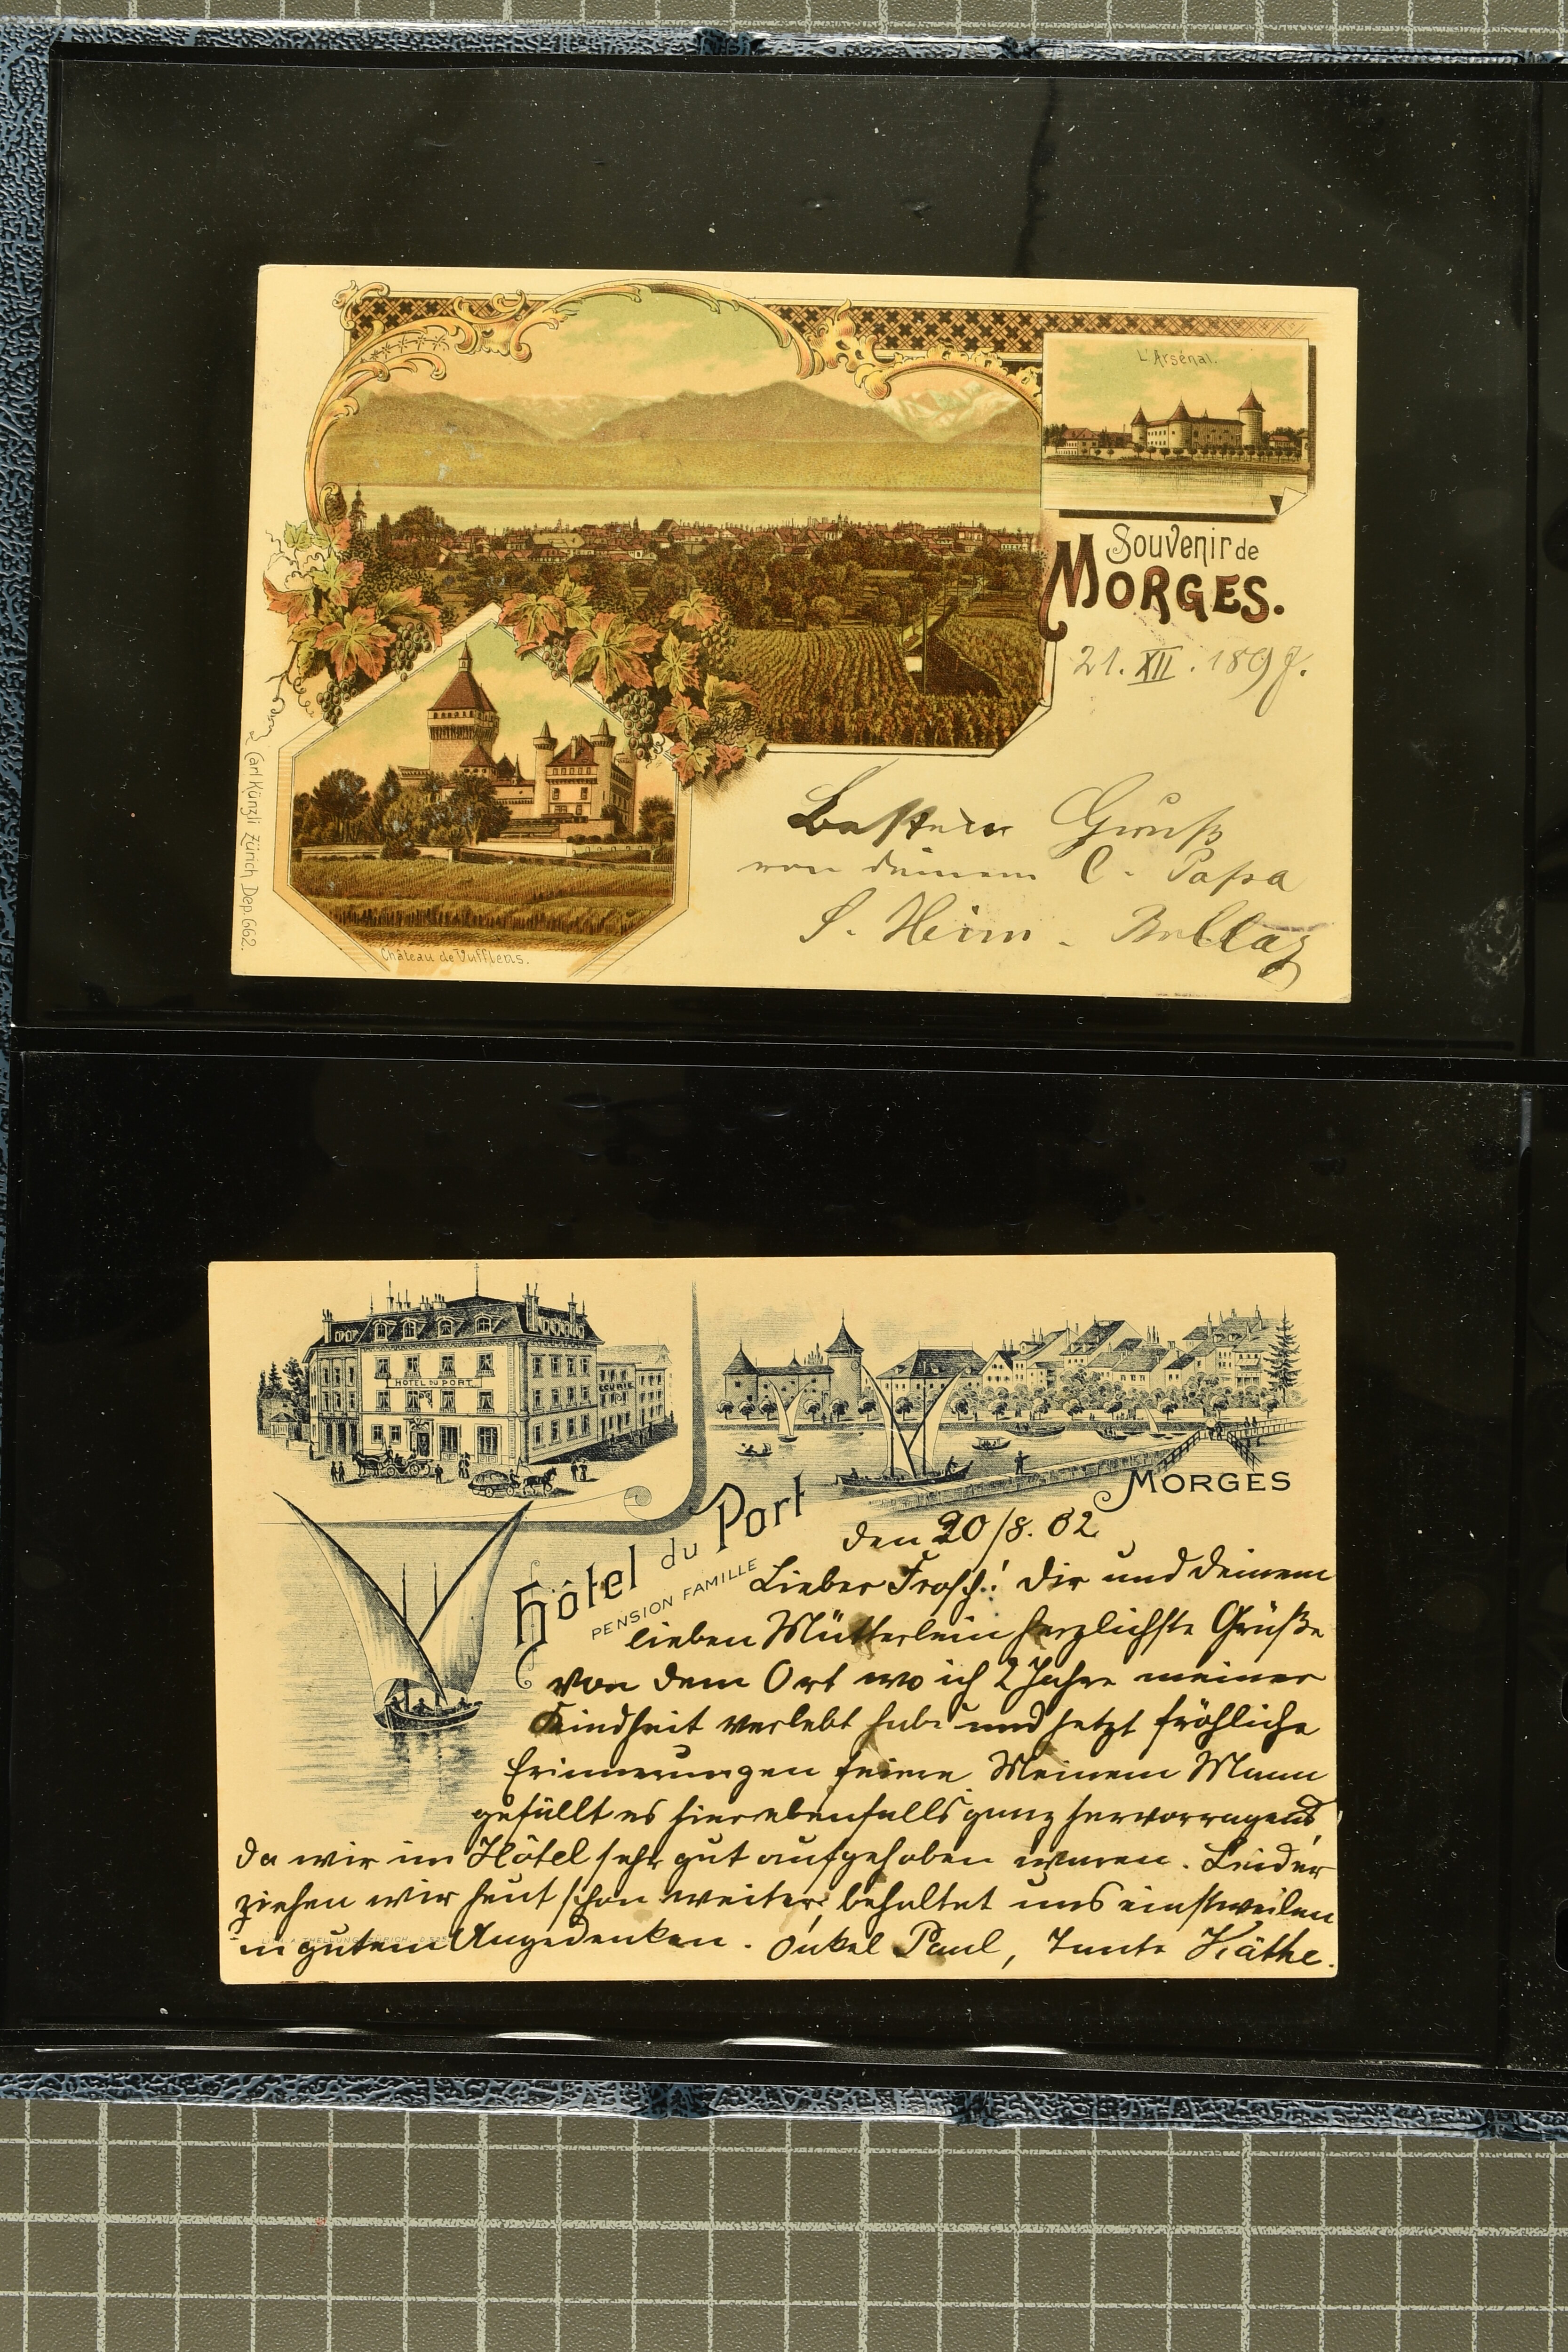 L'Arsénal.
Souvenir de
MORGES.
21. XII. 1897.
Besten Gruß
von deinem C. Papa
S. Heim - Bullaz
Château de Vufflens.
Carl Künzli Zürich Dep. 662.
HÔTEL DU PORT
ECURIE
MORGES
Hôtel du Port
PENSION FAMILLE
den 20/8. 02
Lieber Frosch! Dir und deinem
lieben Mütterlein herzlichste Grüße
von dem Ort wo ich 2 Jahre meiner
Kindheit verlebt habe und jetzt fröhliche
Erinnerungen feiere. Meinem Mann
gefällt es hier ebenfalls ganz hervorragend,
da wir im Hôtel sehr gut aufgehoben waren. Leider
ziehen wir heut schon weiter, behaltet uns einstweilen
in gutem Angedenken. Onkel Paul, Tante Käthe.